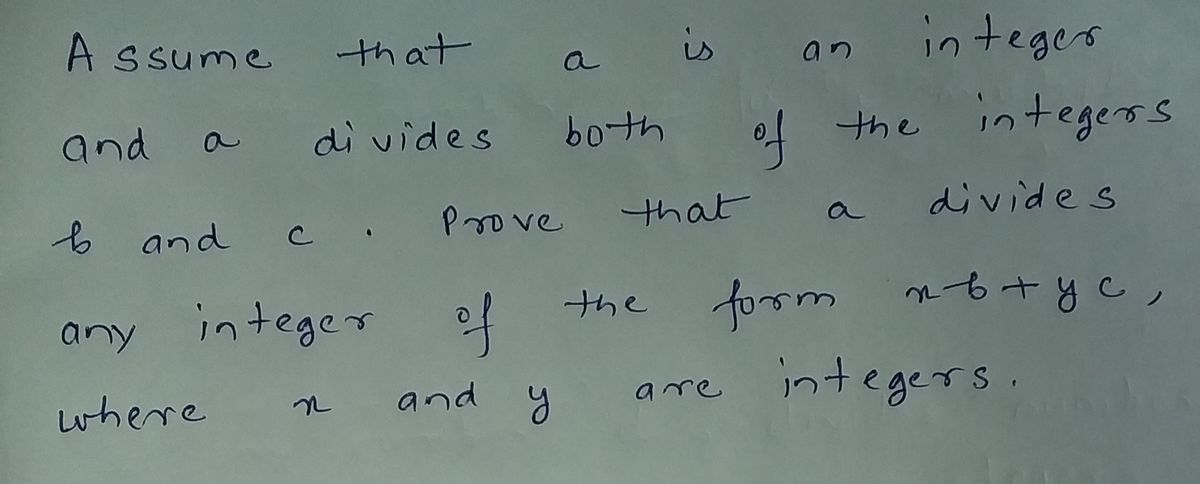 Assume that a is an integer
and a divides both of the integers
b and c. Prove that a divides
any integer of the form xb + yc,
where x and y are integers.